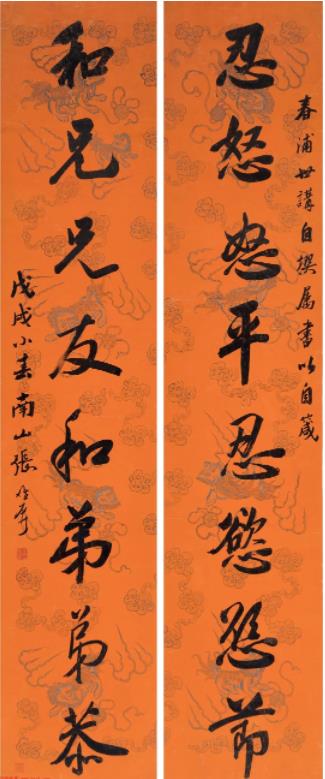 春浦世講自撰屬書以自箴
忍怒怒平忍慾慾節
和兄兄友和弟弟恭
戊戌小春南山張維屏